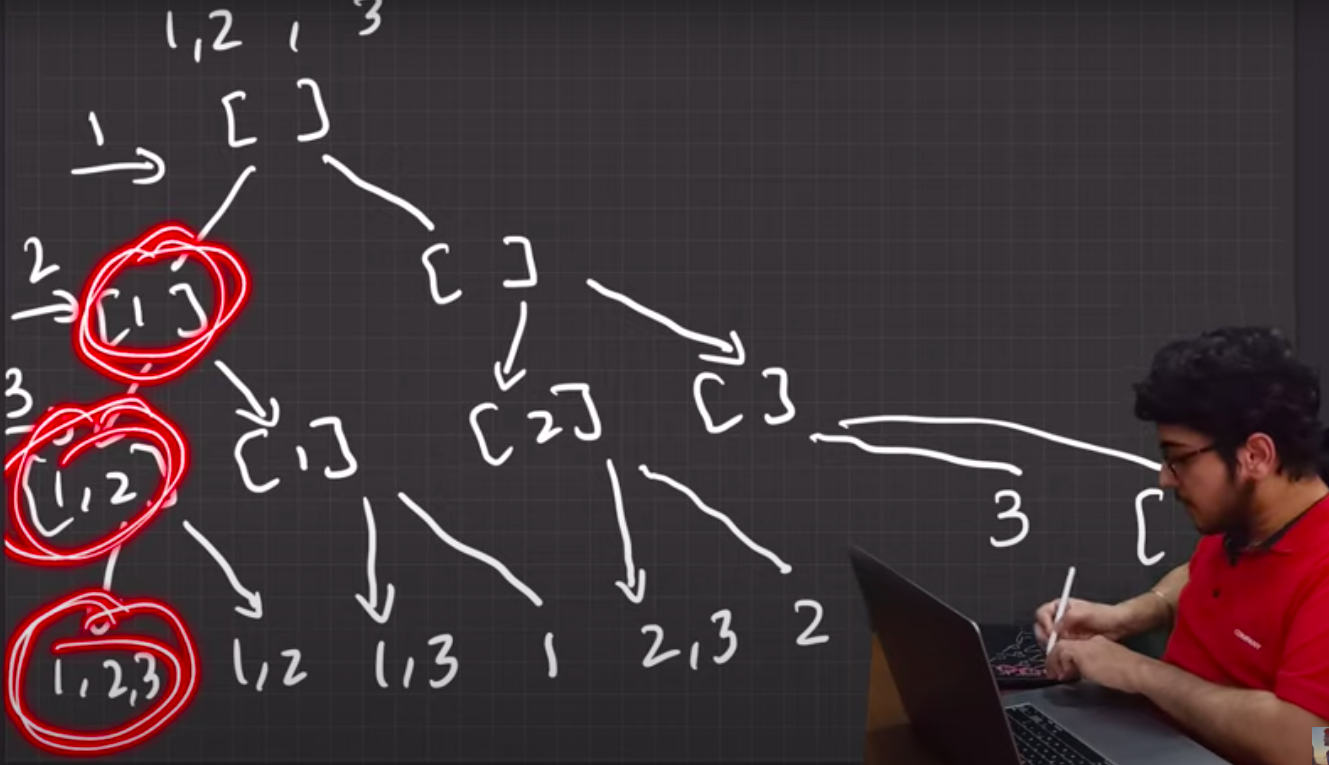 1,2 , 3
1
[ ]
2
[1]
[ ]
3
[1,2]
[1]
[2]
[ ]
3
[
1,2,3
1,2
1,3
1
2,3
2